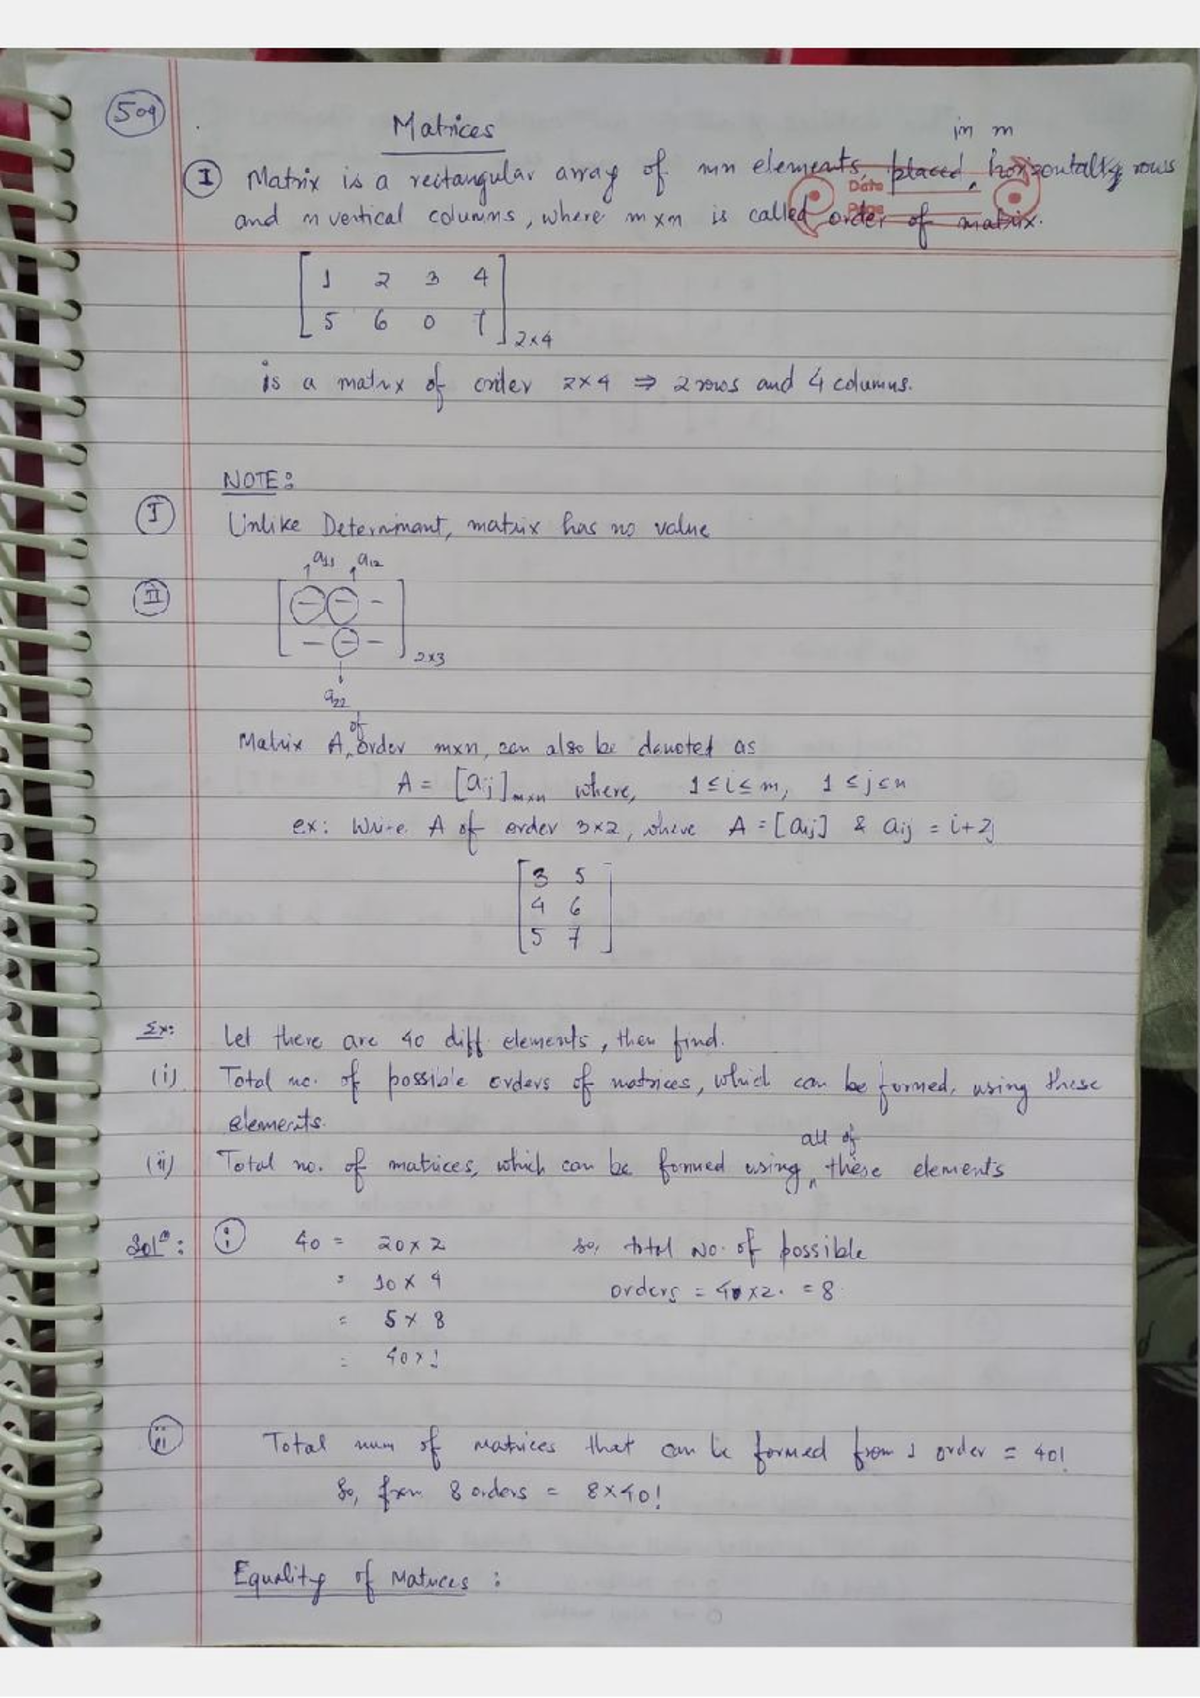 509
Matrices
in m
I Matrix is a rectangular array of mn elements, placed, horizontally rows
Date
Page
and n vertical columns, where m×n is called order of matrix.
[1 2 3 4
5 6 0 7] 2×4
is a matrix of order 2×4 ⇒ 2 rows and 4 columns.
NOTE:
I Unlike Determinant, matrix has no value
a11 a12
II [ – – –
– – – ] 2×3
a22
of
Matrix A, order m×n, can also be denoted as
A = [aij] m×n where, 1 ≤ i ≤ m, 1 ≤ j ≤ n
ex: Write A of order 3×2, where A = [aij] & aij = i+2j
[3 5
4 6
5 7]
Ex: Let there are 40 diff. elements, then find.
(i) Total no. of possible orders of matrices, which can be formed, using these
elements.
all of
(ii) Total no. of matrices, which can be formed using these elements
Solⁿ: i 40 = 20 × 2 so, total No. of possible
= 10 × 4 orders = 4 × 2. = 8.
= 5 × 8
= 40 × 1
ii Total num of matrices that can be formed from 1 order = 40!
So, from 8 orders = 8×40!
Equality of Matrices :